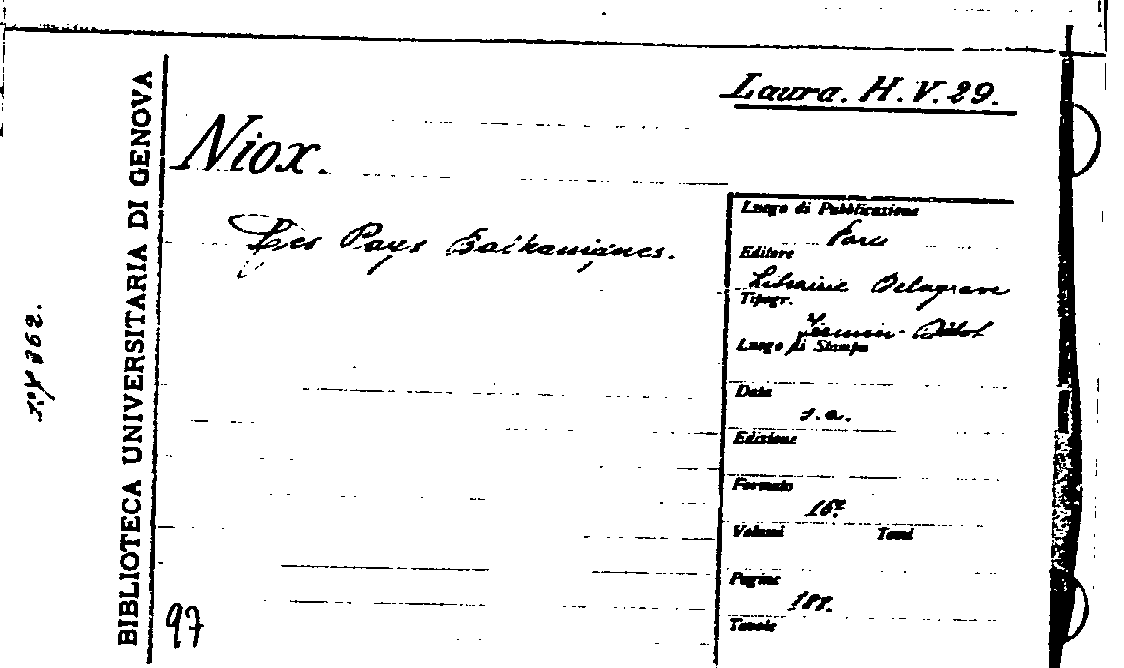 Laura. H.V.29.
BIBLIOTECA UNIVERSITARIA DI GENOVA
Niox.
Les Pays Balkaniques.
Luogo di Pubblicazione
Editore
Librairie Delagrave
Tipogr.
Firmin-Didot
Luogo di Stampa
Data
s.a.
Edizione
Formato
16º
Volumi Tomi
Pagine
Tavole
97